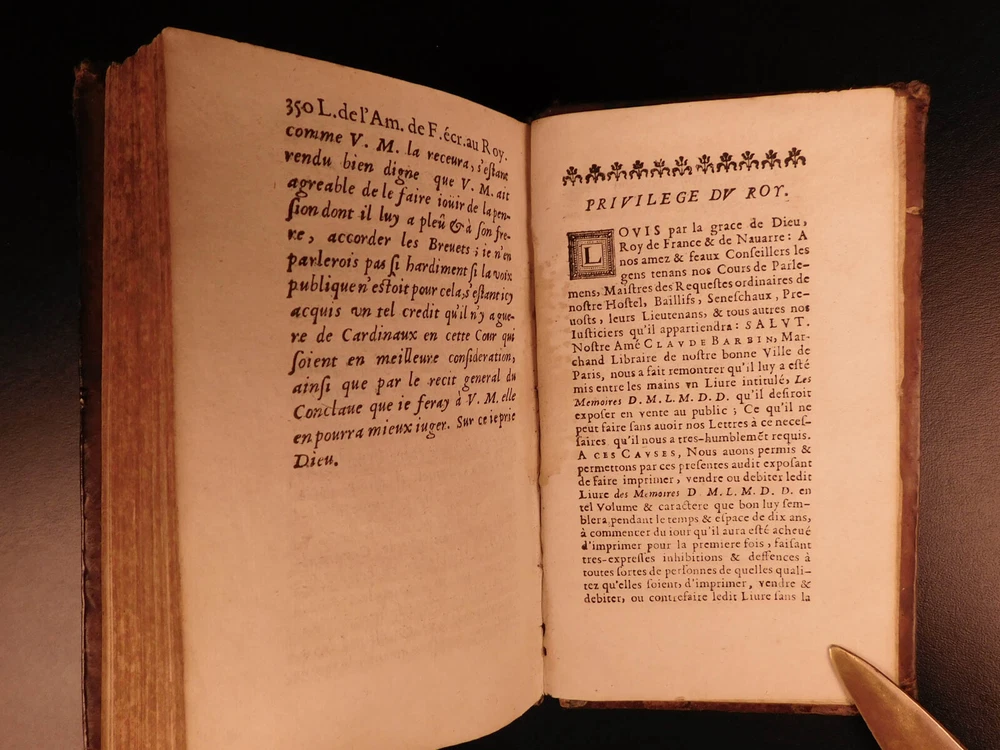 350 L. de l'Am. de F. écr. au Roy.
comme V. M. la receura, s'eſtant
rendu bien digne que V. M. ait
agreable de le faire ioüir de la pen-
ſion dont il luy a pleû & à ſon fre-
re, accorder les Breuets ; ie n'en
parlerois pas ſi hardiment ſi la voix
publique n'eſtoit pour cela, s'eſtant icy
acquis vn tel credit qu'il n'y a gue-
re de Cardinaux en cette Cour qui
ſoient en meilleure conſideration,
ainſi que par le recit general du
Conclaue que ie feray à V. M. elle
en pourra mieux iuger. Sur ce ie prie
Dieu.
PRIVILEGE DV ROY.
LOVIS par la grace de Dieu,
Roy de France & de Nauarre : A
nos amez & feaux Conſeillers les
gens tenans nos Cours de Parle-
mens, Maiſtres des Requeſtes ordinaires de
noſtre Hoſtel, Baillifs, Seneſchaux, Pre-
uoſts, leurs Lieutenans, & tous autres nos
Iuſticiers qu'il appartiendra : SALVT.
Noſtre Amé CLAVDE BARBIN, Mar-
chand Libraire de noſtre bonne Ville de
Paris, nous a fait remontrer qu'il luy a eſté
mis entre les mains vn Liure intitulé, Les
Memoires D. M. L. M. D. D. qu'il deſiroit
expoſer en vente au public ; Ce qu'il ne
peut faire ſans auoir nos Lettres à ce neceſ-
ſaires qu'il nous a tres-humblemēt requis.
A CES CAVSES, Nous auons permis &
permettons par ces preſentes audit expoſant
de faire imprimer, vendre ou debiter ledit
Liure des Memoires D. M. L. M. D. D. en
tel Volume & caractere que bon luy ſem-
blera, pendant le temps & eſpace de dix ans,
à commencer du iour qu'il aura eſté acheué
d'imprimer pour la premiere fois, faiſant
tres-expreſſes inhibitions & deffences à
toutes ſortes de perſonnes de quelles quali-
tez qu'elles ſoient, d'imprimer, vendre &
debiter, ou contrefaire ledit Liure ſans la